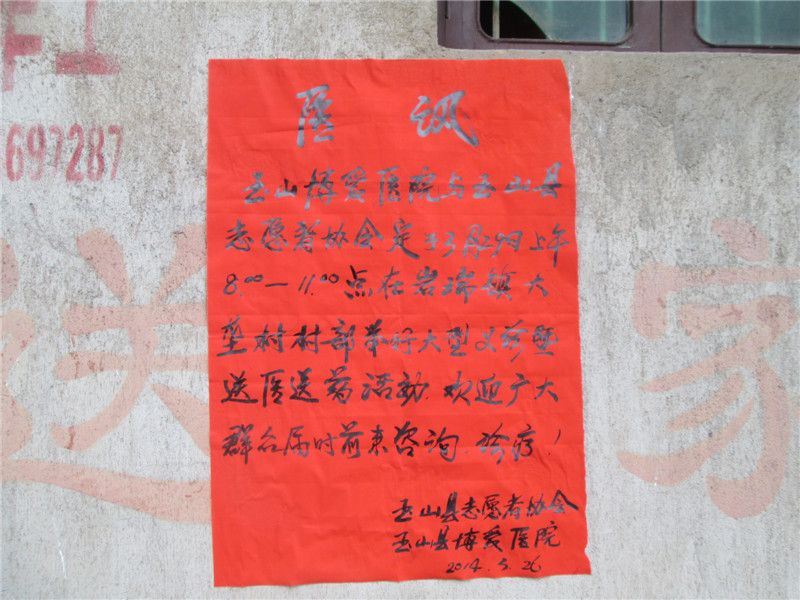 医讯
玉山博爱医院与玉山县
志愿者协会定于3月29日上午
8:00—11:00点在岩瑞镇大
垄村村部举行大型义诊暨
送医送药活动.欢迎广大
群众届时前来咨询.诊疗!
玉山县志愿者协会
玉山县博爱医院
2014.3.26
697287
送
家